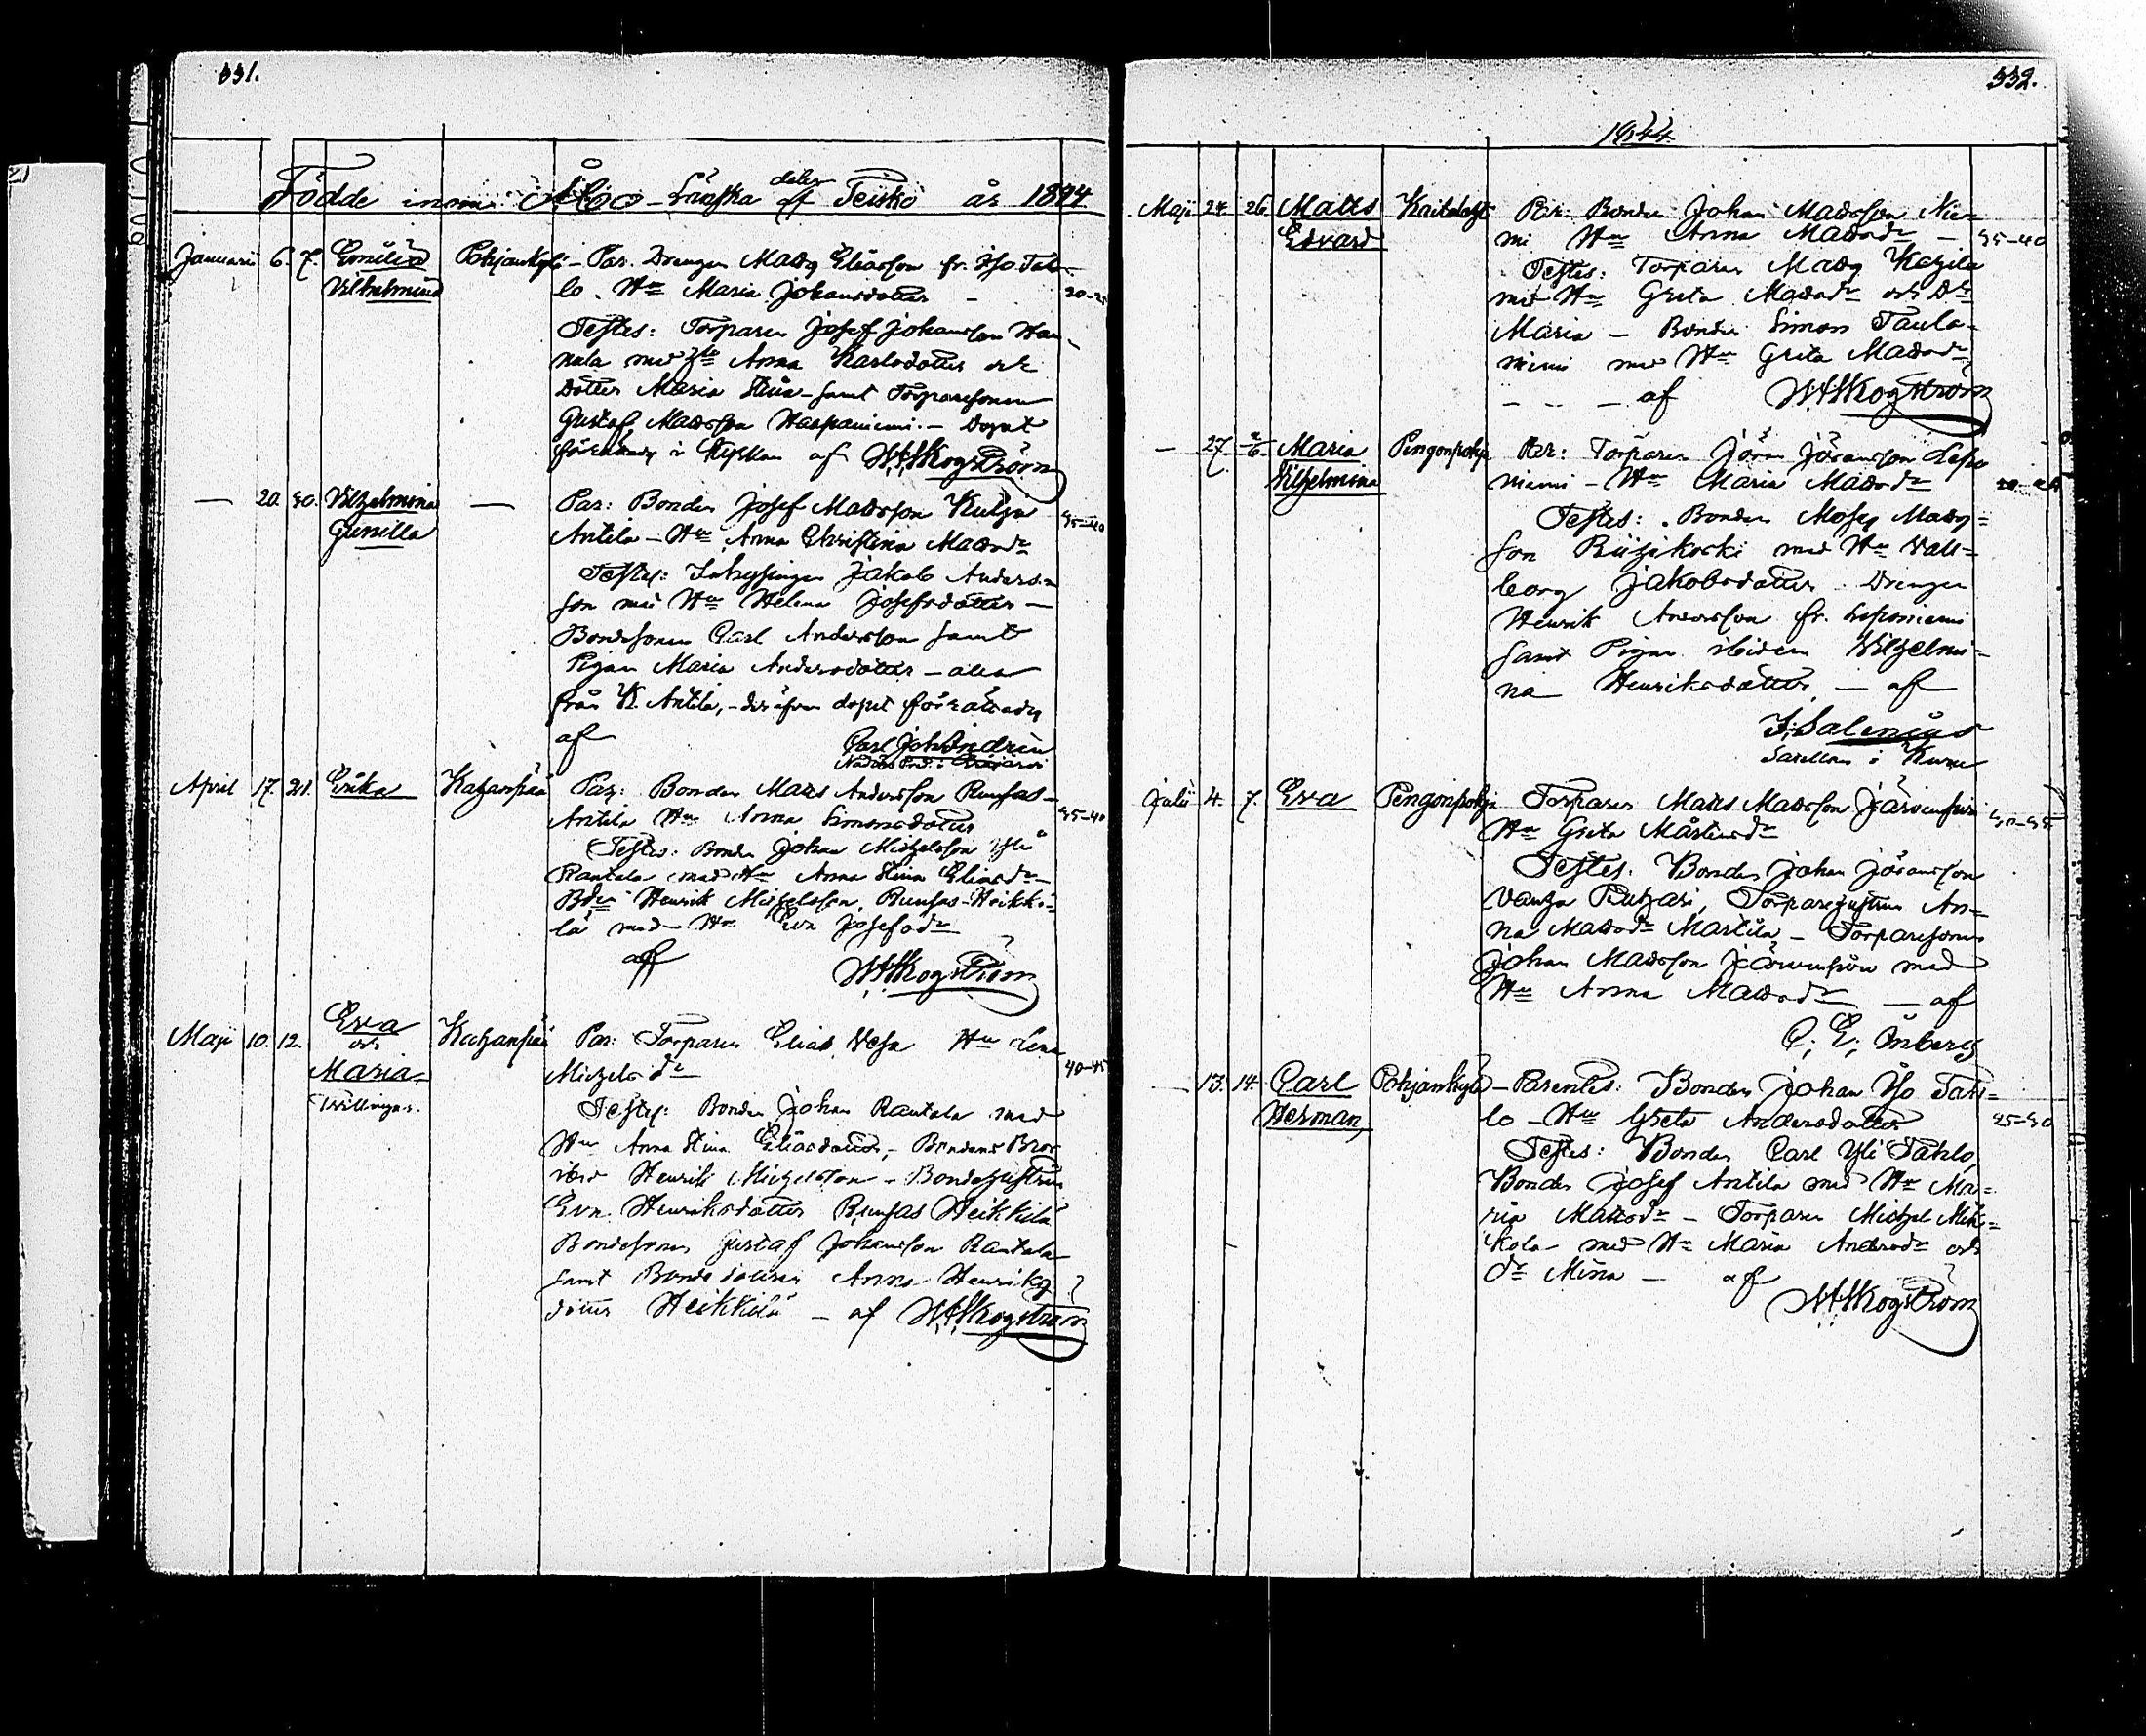 331.
Födde inom Åbo-Länska delen af Teisko år 1844
Januarii 6. 7. Emilia Pohjankylä - Par. Drengen Matts Eliasson fr. Iso Tah-
Vilhelmina lo. Hu Maria Johansdotter - 20-25
Testes: Torparen Josef Johansson Han-
nala med Hu Anna Karlsdotter och
Dotter Maria Stina - samt Torparesonen
Gustaf Mattsson Haapaniemi. - Dopet
förrättades i Kyrkan af W.H.Skogström
— 20. 30. Vilhelmina — Par: Bonden Josef Mattsson Kulja 35-40
Gunilla Antila - Hu Anna Christina Mattsdr
Testes: Inhysingen Jakob Anders-
son med Hu Helena Josefsdotter -
Bondesonen Carl Andersson samt
Pigan Maria Andersdotter - alla
från K. Antila, - därifrån dopet förrättades
af Carl Joh Andrén
April 17. 21. Erika Kazanpää Par: Bonden Matts Andersson Runsas-
Antila Hu Anna Simonsdotter 35-40
Testes: Bonden Johan Michelsson Yli
Rantala med Hu Anna Stina Eliasdr -
Bdn Henrik Michelsson Runsas-Heikki-
lä med Hu Eva Josefsdr
af W.H.Skogström
Maji 10. 12. Eva Kazanpää Par: Torparen Elias Vesa Hu Lena 40-45
och Michelsdr
Maria Testes: Bonden Johan Rantala med
Tvillingar. Hu Anna Stina Eliasdotter, - Bondens Bror
Henrik Michelsson - Bondehustrun
Eva Henriksdotter Runsas Heikkilä
Bondesonen Gustaf Johansson Rantala
samt Bondedottren Anna Henriks
dotter Heikkilä - af W.H.Skogström
332.
1844.
Maji 24. 26. Matts Par: Bonden Johan Mattsson Nie-
Edvard mi Hu Anna Mattsdr - 35-40
Testes: Torparen Matts
med Hu Greta Mattsdr och Dr
Maria - Bonden Simon Taula-
niemi med Hu Greta Mattsdr
— af W.H.Skogström
— 27. 2/6. Maria Pengonpohja Par: Torparen Jöran Jöransson Lepo
Vilhelmina niemi - Hu Maria Mattsdr
Testes: Bonden Moses Matts-
son Riihikoski med Hu Val-
borg Jakobsdotter. Drengen
Henrik Andersson fr. Leponiemi
samt Pigan ibidem Vilhelmi-
na Henriksdotter, - af
J. Salenius
Sacellan i Kuru
Julii 4. 7. Eva Pengonpohja Torparen Matts Mattsson Järvensivu
Hu Greta Mårtensdr
Testes. Bonden Johan Jöransson
Vanha Pukari, Torparehustrun An-
na Mattsdr Martila - Torparesonen
Johan Mattsson Järvensivu med
Hu Anna Mattsdr - af
C. E. Inberg
— 13. 14. Carl Pohjankylä - Parentes: Bonden Johan Iso Tah-
Herman, lo - Hu Greta Andersdotter 25-30
Testes: Bonden Carl Yli Tahlo,
Bonden Josef Antila med Hu Ma-
ria Mattsdr - Torparen Michel Mik-
kola med Hu Maria Andersdr och
dr Mina - af
W.H.Skogström